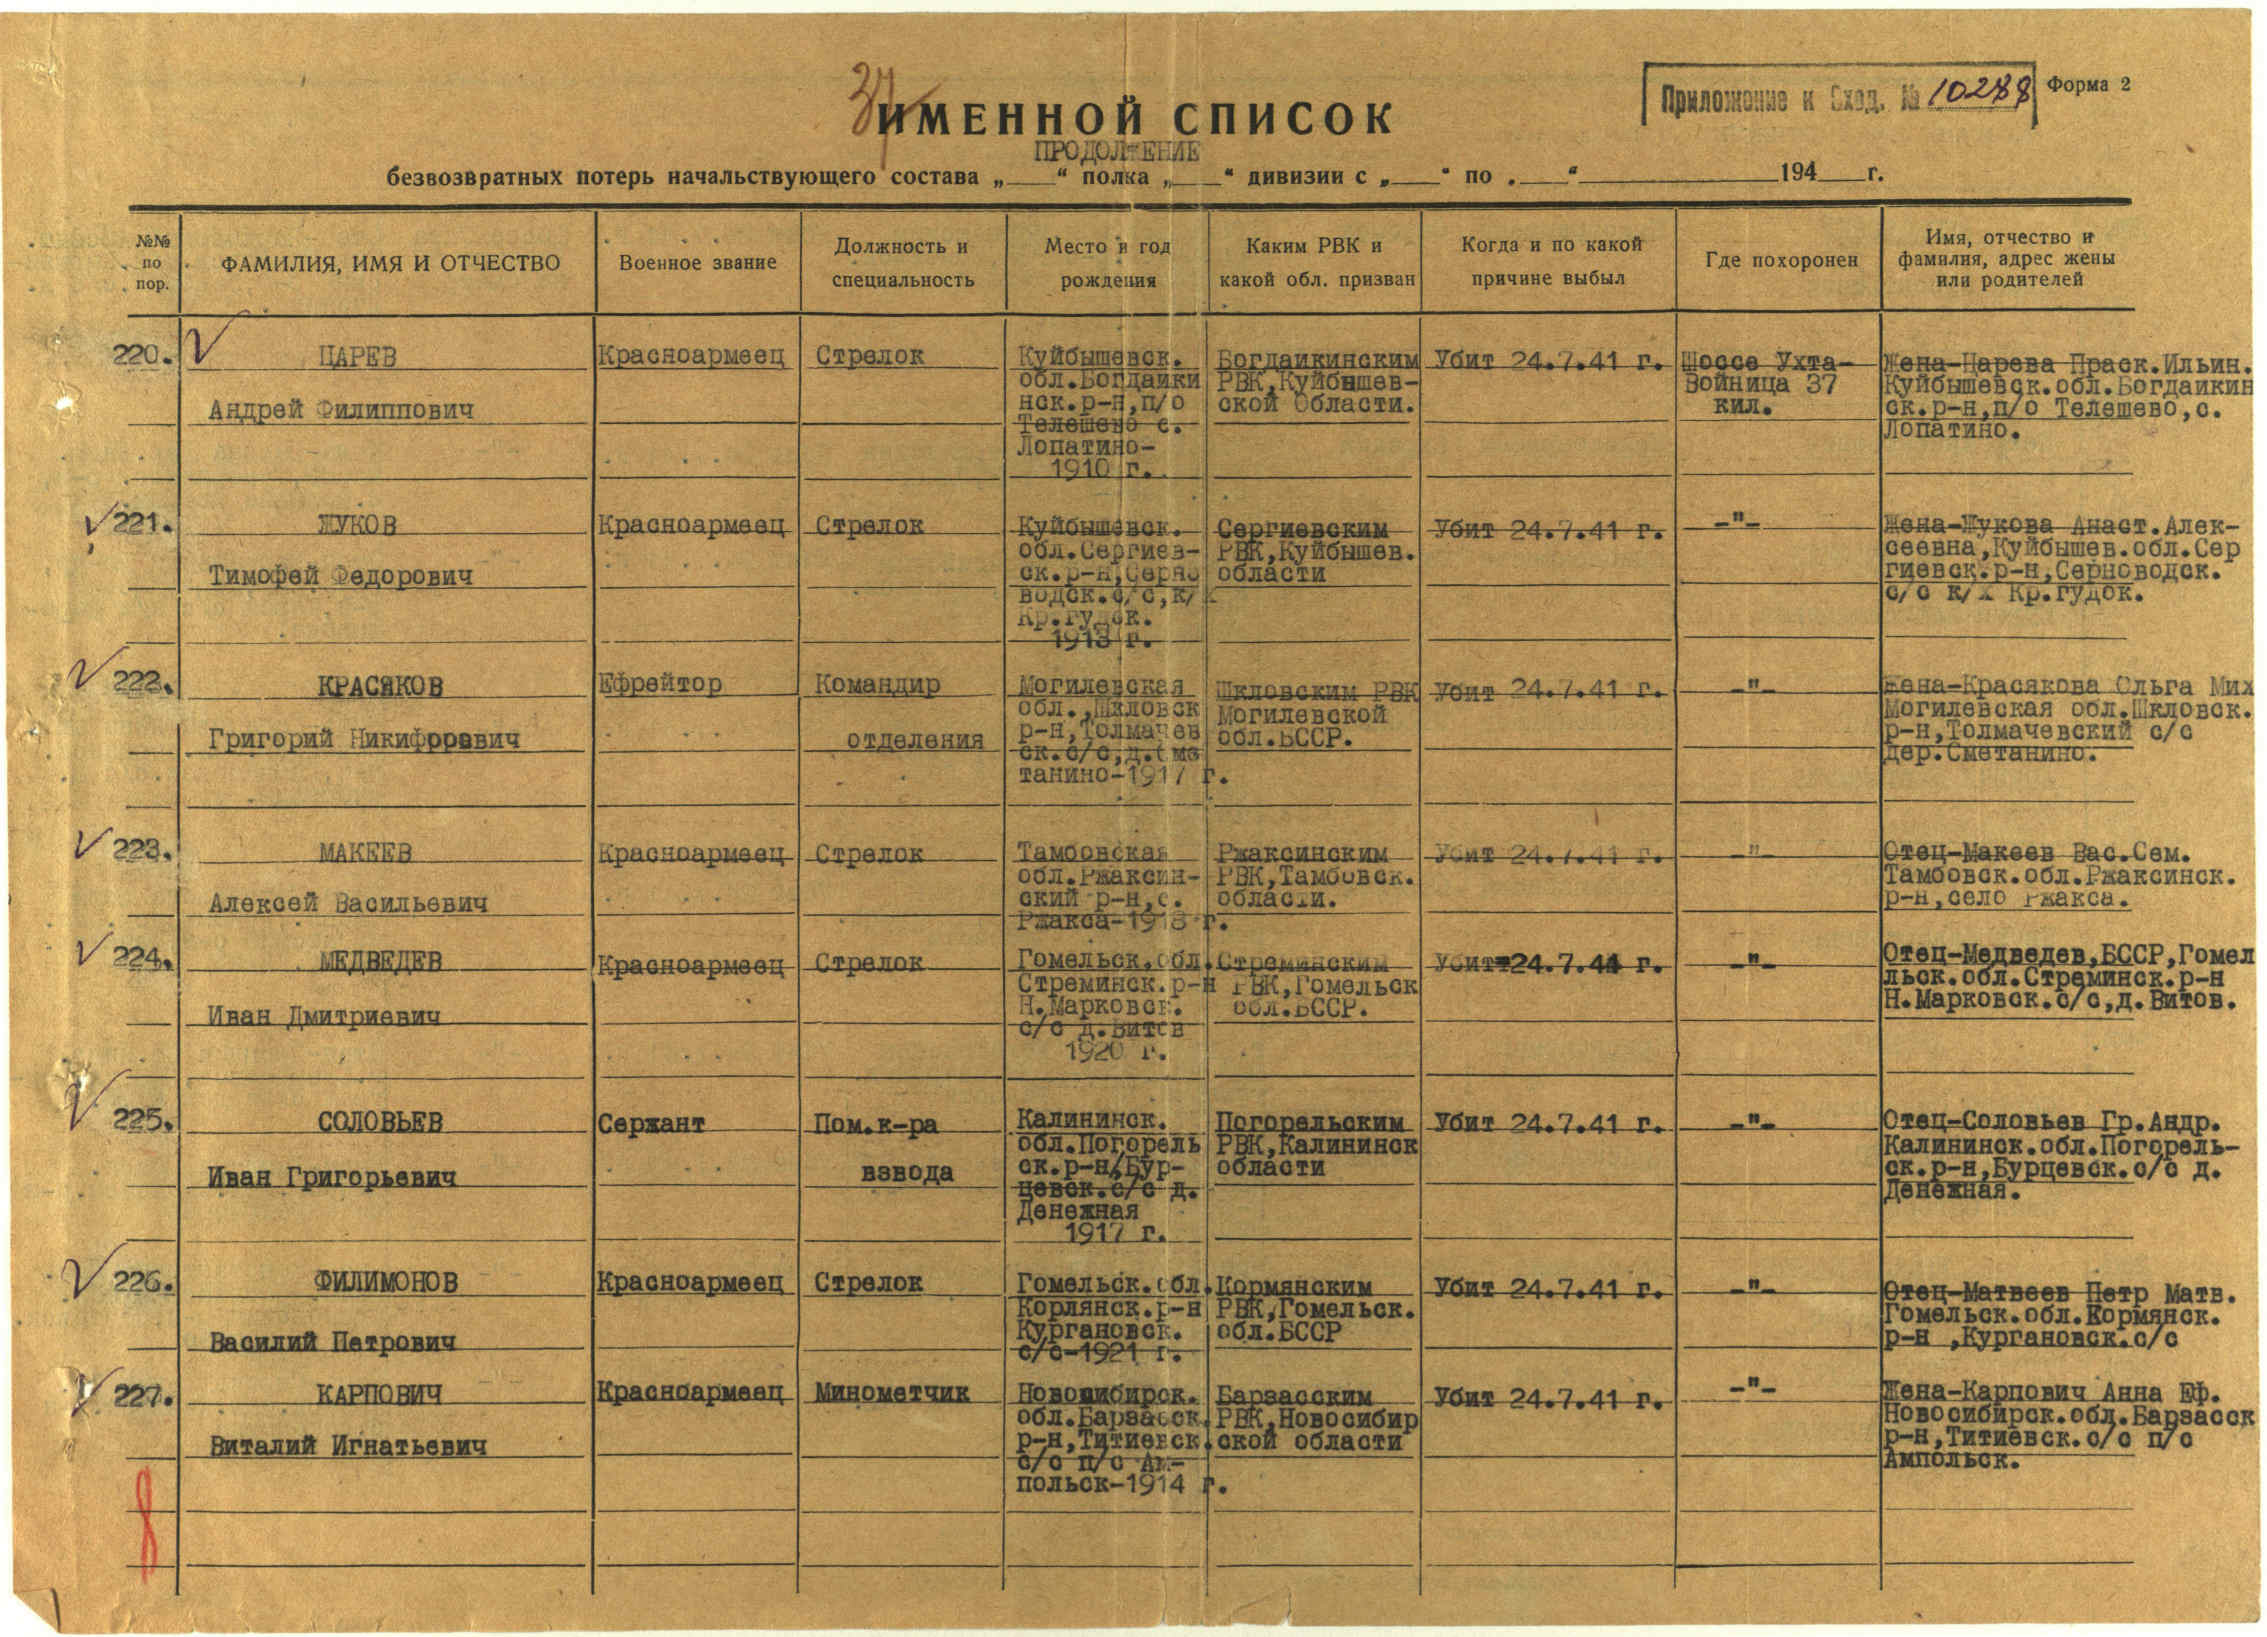 37
Приложение к вход. № 10288
Форма 2
ИМЕННОЙ СПИСОК
ПРОДОЛЖЕНИЕ
безвозвратных потерь начальствующего состава „___“ полка „___“ дивизии с „___“ по „___“ 194__г.
№№ по пор.
ФАМИЛИЯ, ИМЯ И ОТЧЕСТВО
Военное звание
Должность и специальность
Место и год рождения
Каким РВК и какой обл. призван
Когда и по какой причине выбыл
Где похоронен
Имя, отчество и фамилия, адрес жены или родителей
220.
ЦАРЕВ
Андрей Филиппович
Красноармеец
Стрелок
Куйбышевск.
обл.Богдайки
нск.р-н,п/о
Телешево с.
Лопатино-
1910 г.
Богдаикинским
РВК,Куйбышев-
ской Области.
Убит 24.7.41 г.
Шоссе Ухта-
Войница 37
кил.
Жена-Царева Праск.Ильин.
Куйбышевск.обл.Богдаикин
ск.р-н,п/о Телешево,с.
Лопатино.
221.
ЖУКОВ
Тимофей Федорович
Красноармеец
Стрелок
Куйбышевск.
обл.Сергиев-
ск.р-н,Серно
водск.с/с,к/х
Кр.гудок.
1913 г.
Сергиевским
РВК,Куйбышев.
области
Убит 24.7.41 г.
-"-
Жена-Жукова Анаст.Алек-
сеевна,Куйбышев.обл.Сер
гиевск.р-н,Серноводск.
с/с к/х Кр.гудок.
222.
КРАСЯКОВ
Григорий Никифорович
Ефрейтор
Командир
отделения
Могилевская
обл.,Шкловск
р-н,Толмачев
ск.с/с,д.Сме
танино-1917 г.
Шкловским РВК
Могилевской
обл.БССР.
Убит 24.7.41 г.
-"-
Жена-Красякова Ольга Мих
Могилевская обл.Шкловск.
р-н,Толмачевский с/с
дер.Сметанино.
223.
МАКЕЕВ
Алексей Васильевич
Красноармеец
Стрелок
Тамбовская
обл.Ржаксин-
ский р-н,с.
Ржакса-1913 г.
Ржаксинским
РВК,Тамбовск.
области.
Убит 24.7.41 г.
-"-
Отец-Макеев Вас.Сем.
Тамбовск.обл.Ржаксинск.
р-н,село Ржакса.
224.
МЕДВЕДЕВ
Иван Дмитриевич
Красноармеец
Стрелок
Гомельск.обл.
Стреминск.р-н
Н.Марковск.
с/с д.Витов
1920 г.
Стреминским
РВК,Гомельск
обл.БССР.
Убит-24.7.41 г.
-"-
Отец-Медведев,БССР,Гомел
льск.обл.Стреминск.р-н
Н.Марковск.с/с,д.Витов.
225.
СОЛОВЬЕВ
Иван Григорьевич
Сержант
Пом.к-ра
взвода
Калининск.
обл.Погорель
ск.р-н,Бур-
цевск.с/с д.
Денежная
1917 г.
Погорельским
РВК,Калининск
области
Убит 24.7.41 г.
-"-
Отец-Соловьев Гр.Андр.
Калининск.обл.Погорель-
ск.р-н,Бурцевск.с/с д.
Денежная.
226.
ФИЛИМОНОВ
Василий Петрович
Красноармеец
Стрелок
Гомельск.обл.
Корлянск.р-н
Кургановск.
с/с-1921 г.
Кормянским
РВК,Гомельск.
обл.БССР
Убит 24.7.41 г.
-"-
Отец-Матвеев Петр Матв.
Гомельск.обл.Кормянск.
р-н ,Кургановск.с/с
227.
КАРПОВИЧ
Виталий Игнатьевич
Красноармеец
Минометчик
Новосибирск.
обл.Барзасск.
р-н,Титиевск.
с/с п/с Ам-
польск-1914 г.
Барзасским
РВК,Новосибир
ской области
Убит 24.7.41 г.
-"-
Жена-Карпович Анна Еф.
Новосибирск.обл.Барзасск
р-н,Титиевск.с/с п/с
Ампольск.